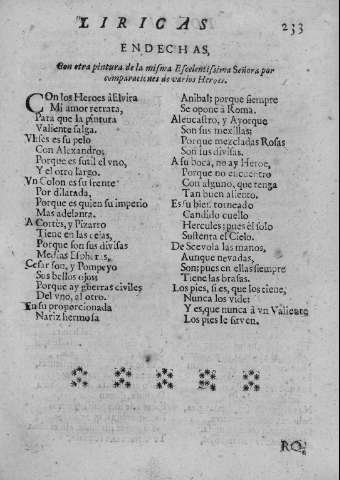 LIRICAS
233
ENDECHAS,
Con otra pintura de la misma Excelentissima Señora por
comparaciones de varios Heroes.
COn los Heroes à Elvira
Mi amor retrata,
Para que la pintura
Valiente salga.
Vlises es su pelo
Con Alexandro;
Porque es sutil el vno,
Y el otro largo.
Vn Colon es su frente
Por dilatada,
Porque es quien su imperio
Mas adelanta.
A Cortès, y Pizarro
Tiene en las cejas,
Porque son sus divisas
Medias Espheras,
Cesar son, y Pompeyo
Sus bellos ojos
Porque ay guerras civiles
Del vno, al otro.
En su proporcionada
Nariz hermosa
Anibal; porque siempre
Se opone à Roma.
Alencastro, y Ayorque
Son sus mexillas;
Porque mezcladas Rosas
Son sus divisas.
A su boca, no ay Heroe,
Porque no encuentro
Con alguno, que tenga
Tan buen aliento.
Es su bien torneado
Candido cuello
Hercules; pues èl solo
Sustenta el Cielo.
De Scevola las manos,
Aunque nevadas,
Son; pues en ellas siempre
Tiene las brasas.
Los pies, si es, que los tiene,
Nunca los vide;
Y es, que nunca à vn Valiente
Los pies le sirven.
RO,